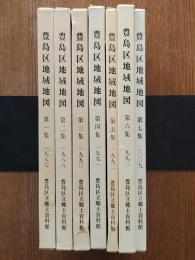 豊島区地域地図 第一集 一九八七 豊島区立郷土資料館
豊島区地域地図 第二集 一九八八 豊島区立郷土資料館
豊島区地域地図 第三集 豊島区立郷土資料館
豊島区地域地図 第四集 豊島区立郷土資料館
豊島区地域地図 第五集 豊島区立郷土資料館
豊島区地域地図 第六集 豊島区立郷土資料館
豊島区地域地図 第七集 豊島区立郷土資料館